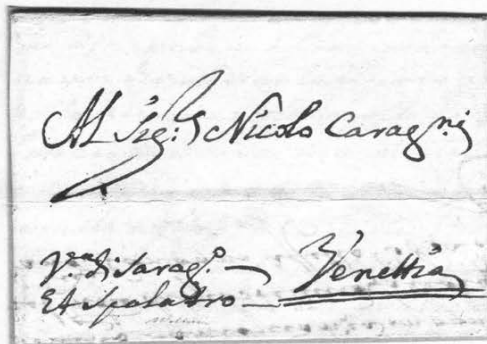 Al Sig:r Nicolo Caragni
di Sarag.o
Et Spalatro Venettia